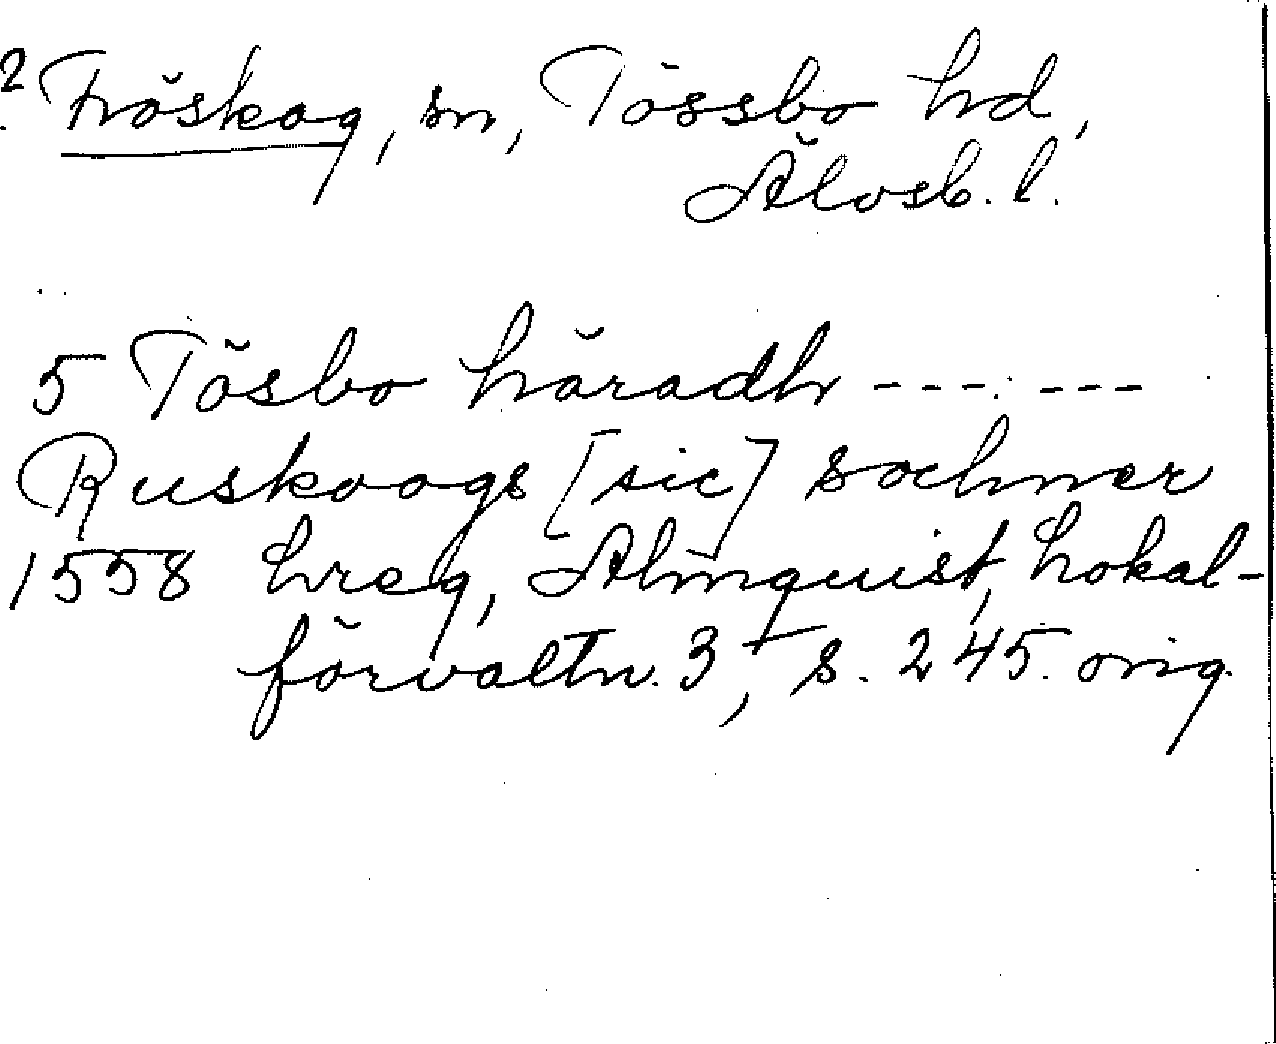 2 Fröskog, sn, Tössbo hd,
Älvsb. l.
5 Tösbo häradh --- ---
Ruskoogs [sic] sochner
1558 hreg, Almquist, Lokal-
förvaltn. 3, s. 245. orig.